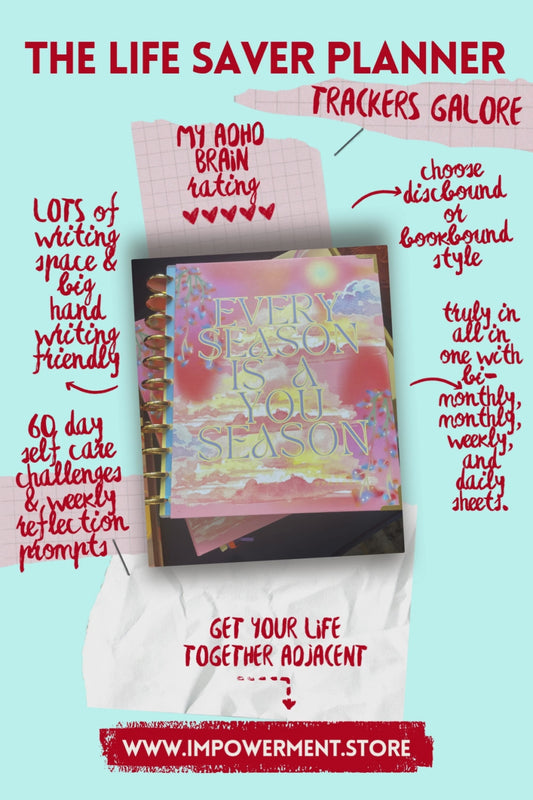 THE LIFE SAVER PLANNER
TRACKERS GALORE
MY ADHD
BRAIN
rating
choose
discbound
or
bookbound
style
LOTS of
writing
space &
big
hand
writing
friendly
EVERY
SEASON
IS A
YOU
SEASON
truly in
all in
one with
bi-
monthly,
monthly,
weekly,
and
daily
sheets.
60 day
self care
challenges
& weekly
reflection
prompts
GET YOUR LIFE
TOGETHER ADJACENT
WWW.IMPOWERMENT.STORE